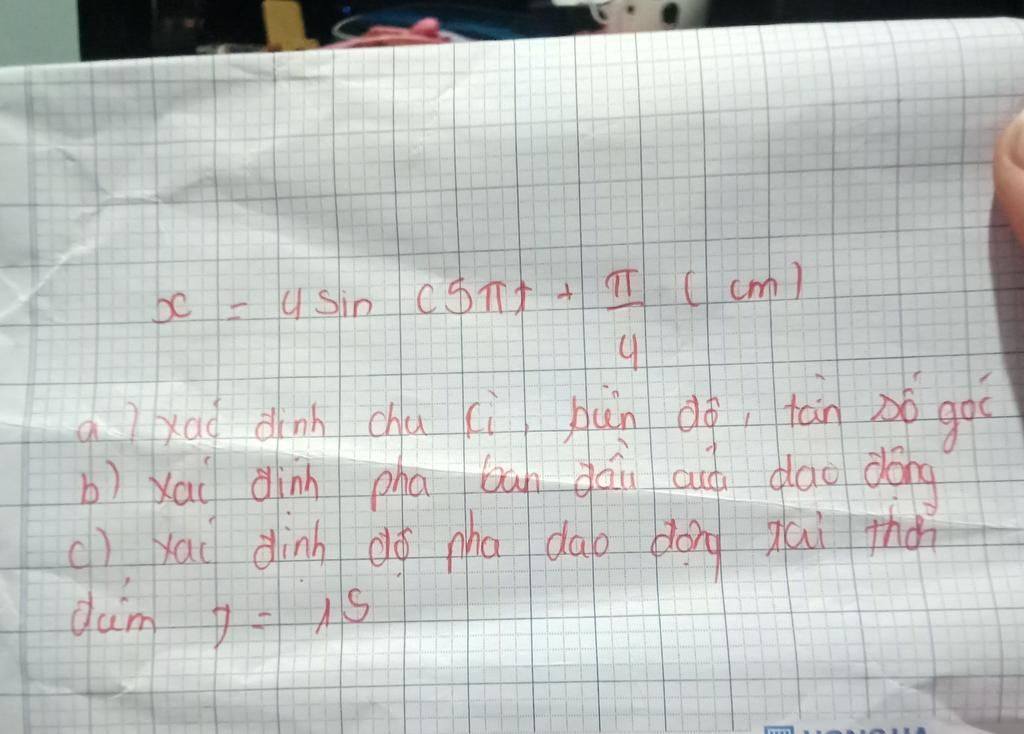 x = 4 sin (5πt + π/4 ( cm )
a ) xác định chu kì, biên độ, tần số góc
b) xác định pha ban đầu của dao động
c) xác định độ pha dao động tại thời
điểm t = 1s